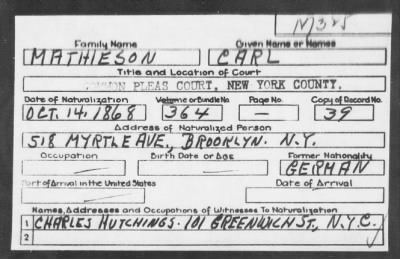 M325
Family Name Given Name or Names
MATHIESON CARL
Title and Location of Court
COMMON PLEAS COURT, NEW YORK COUNTY.
Date of Naturalization Volume or Bundle No. Page No. Copy of Record No.
OCT. 14, 1868 364 — 39
Address of Naturalized Person
518 MYRTLE AVE., BROOKLYN. N.Y.
Occupation Birth Date or Age Former Nationality
GERMAN
Port of Arrival in the United States Date of Arrival
Names, Addresses and Occupations of Witnesses To Naturalization
1 CHARLES HUTCHINGS. 101 GREENWICH ST., N.Y.C.
2